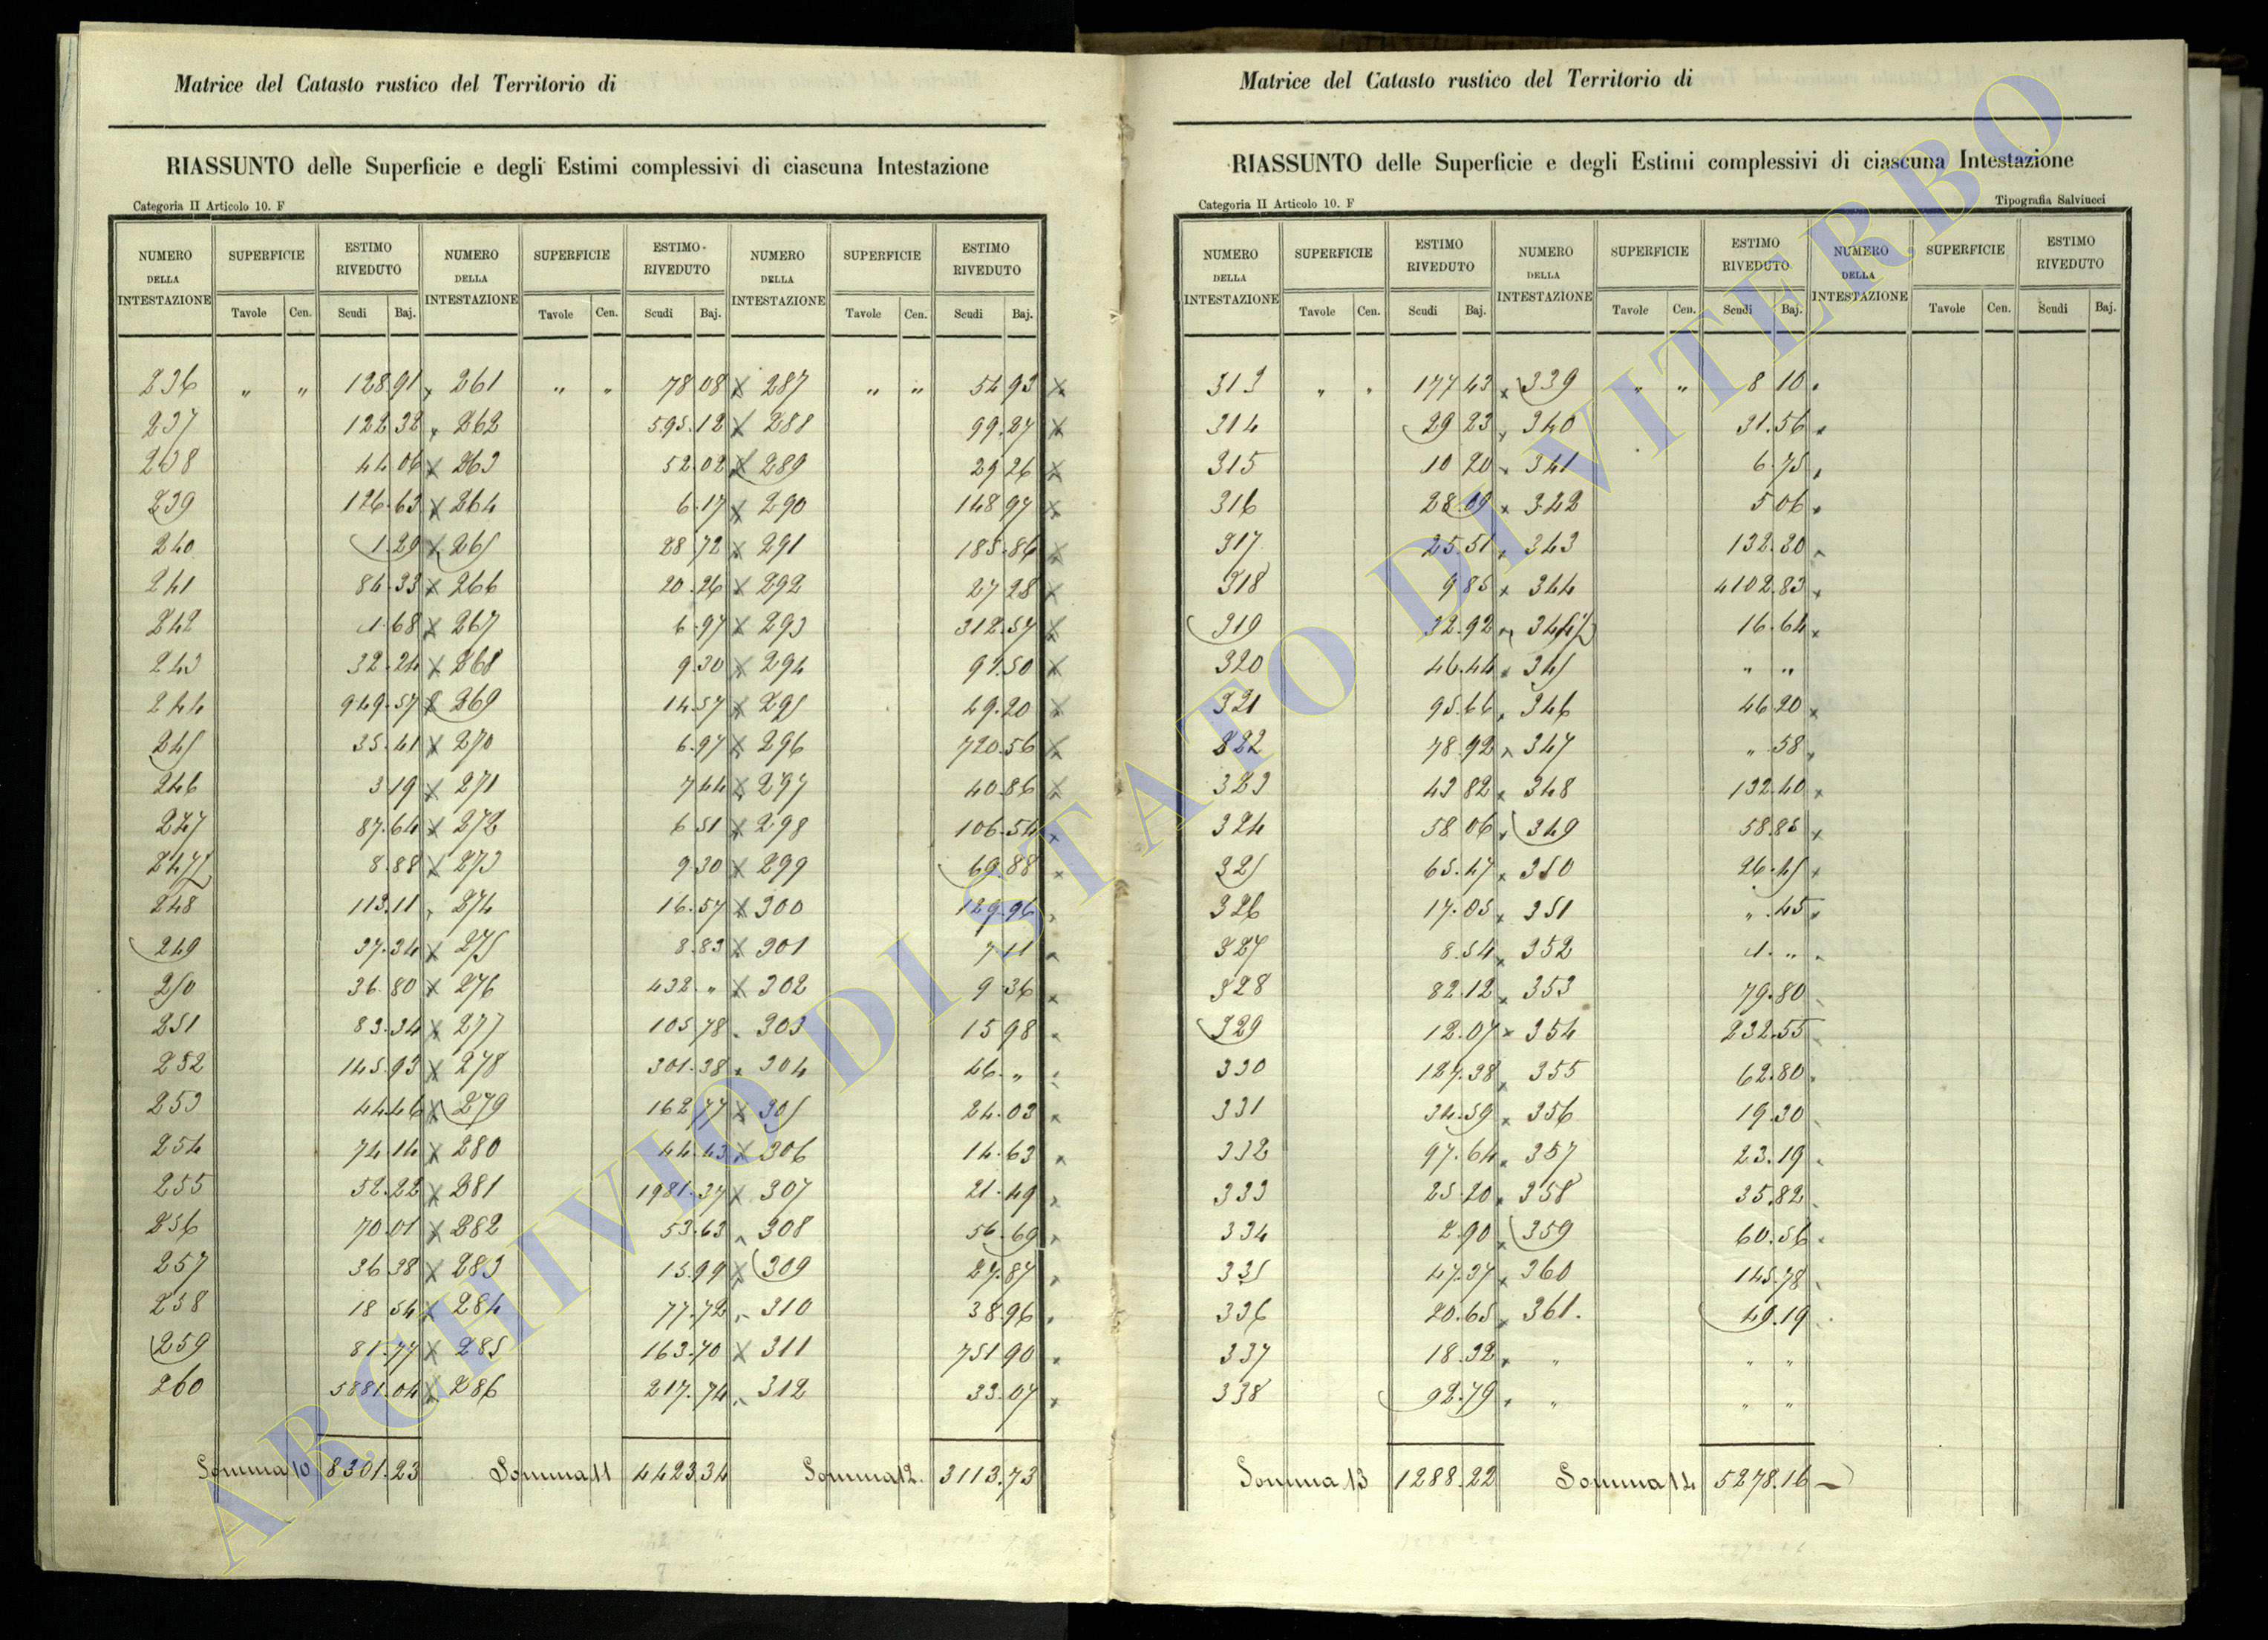 Matrice del Catasto rustico del Territorio di
RIASSUNTO delle Superficie e degli Estimi complessivi di ciascuna Intestazione
Categoria II Articolo 10. F
NUMERO DELLA INTESTAZIONE SUPERFICIE ESTIMO RIVEDUTO NUMERO DELLA INTESTAZIONE SUPERFICIE ESTIMO RIVEDUTO NUMERO DELLA INTESTAZIONE SUPERFICIE ESTIMO RIVEDUTO
Tavole Cen. Scudi Baj. Tavole Cen. Scudi Baj. Tavole Cen. Scudi Baj.
236 " " 128 91 261 " " 78 08 287 " " 54 93
237 122 32 262 595.12 288 99.27
238 44.06 263 52.02 289 29 26
239 126.63 264 6.17 290 148 97
240 1.29 265 28 72 291 185.86
241 84.33 266 20.26 292 27 28
242 1.68 267 6.97 293 312.57
243 32.24 268 9.30 294 92.50
244 949.57 269 14.57 295 49.20
245 35.41 270 6.97 296 720.56
246 3 19 271 7 44 297 40.86
247 87.64 272 6 51 298 106.54
247½ 8.88 273 9 30 299 69.88
248 113.11 274 16.57 300 129.96
249 37.34 275 8.83 301 7 11
250 36.80 276 432 " 302 9 36
251 83.34 277 105 78 303 15 98
252 145.93 278 301.38 304 46. "
253 44.46 279 162 77 305 24.03
254 74.14 280 44.43 306 14.63
255 52.22 281 1981.37 307 21.49
256 70.01 282 53.63 308 56.69
257 36.38 283 15.99 309 27.87
258 18 54 284 77.72 310 38 96
259 81.77 285 163.70 311 751 90
260 5881.04 286 217.74 312 33.07
Somma 10 8301.23 Somma 11 4423.34 Somma 12. 3113.73
Matrice del Catasto rustico del Territorio di
RIASSUNTO delle Superficie e degli Estimi complessivi di ciascuna Intestazione
Categoria II Articolo 10. F Tipografia Salviucci
NUMERO DELLA INTESTAZIONE SUPERFICIE ESTIMO RIVEDUTO NUMERO DELLA INTESTAZIONE SUPERFICIE ESTIMO RIVEDUTO NUMERO DELLA INTESTAZIONE SUPERFICIE ESTIMO RIVEDUTO
Tavole Cen. Scudi Baj. Tavole Cen. Scudi Baj. Tavole Cen. Scudi Baj.
313 " " 177 43 339 " " 8 10
314 29 23 340 31.56
315 10 20 341 6.75
316 28.09 342 5 06
317 25.51 343 132.30
318 9 85 344 4102.83
319 32.92 344½ 16.64
320 46.44 345 " "
321 95.66 346 46 20
322 78.92 347 " 58
323 43 82 348 132.40
324 58 06 349 58.85
325 65.47 350 26.45
326 17.05 351 " .45
327 8.54 352 1. "
328 82.12 353 79.80
329 12.07 354 232.55
330 127.38 355 62.80
331 34.59 356 19.30
332 97.64 357 23.19
333 25.20 358 35.82
334 2.90 359 60.56
335 47.37 360 145.78
336 20.65 361. 49.19
337 18.32 " " "
338 92.79 " " "
Somma 13 1288.22 Somma 14 5278.16
ARCHIVIO DI STATO DI VITERBO